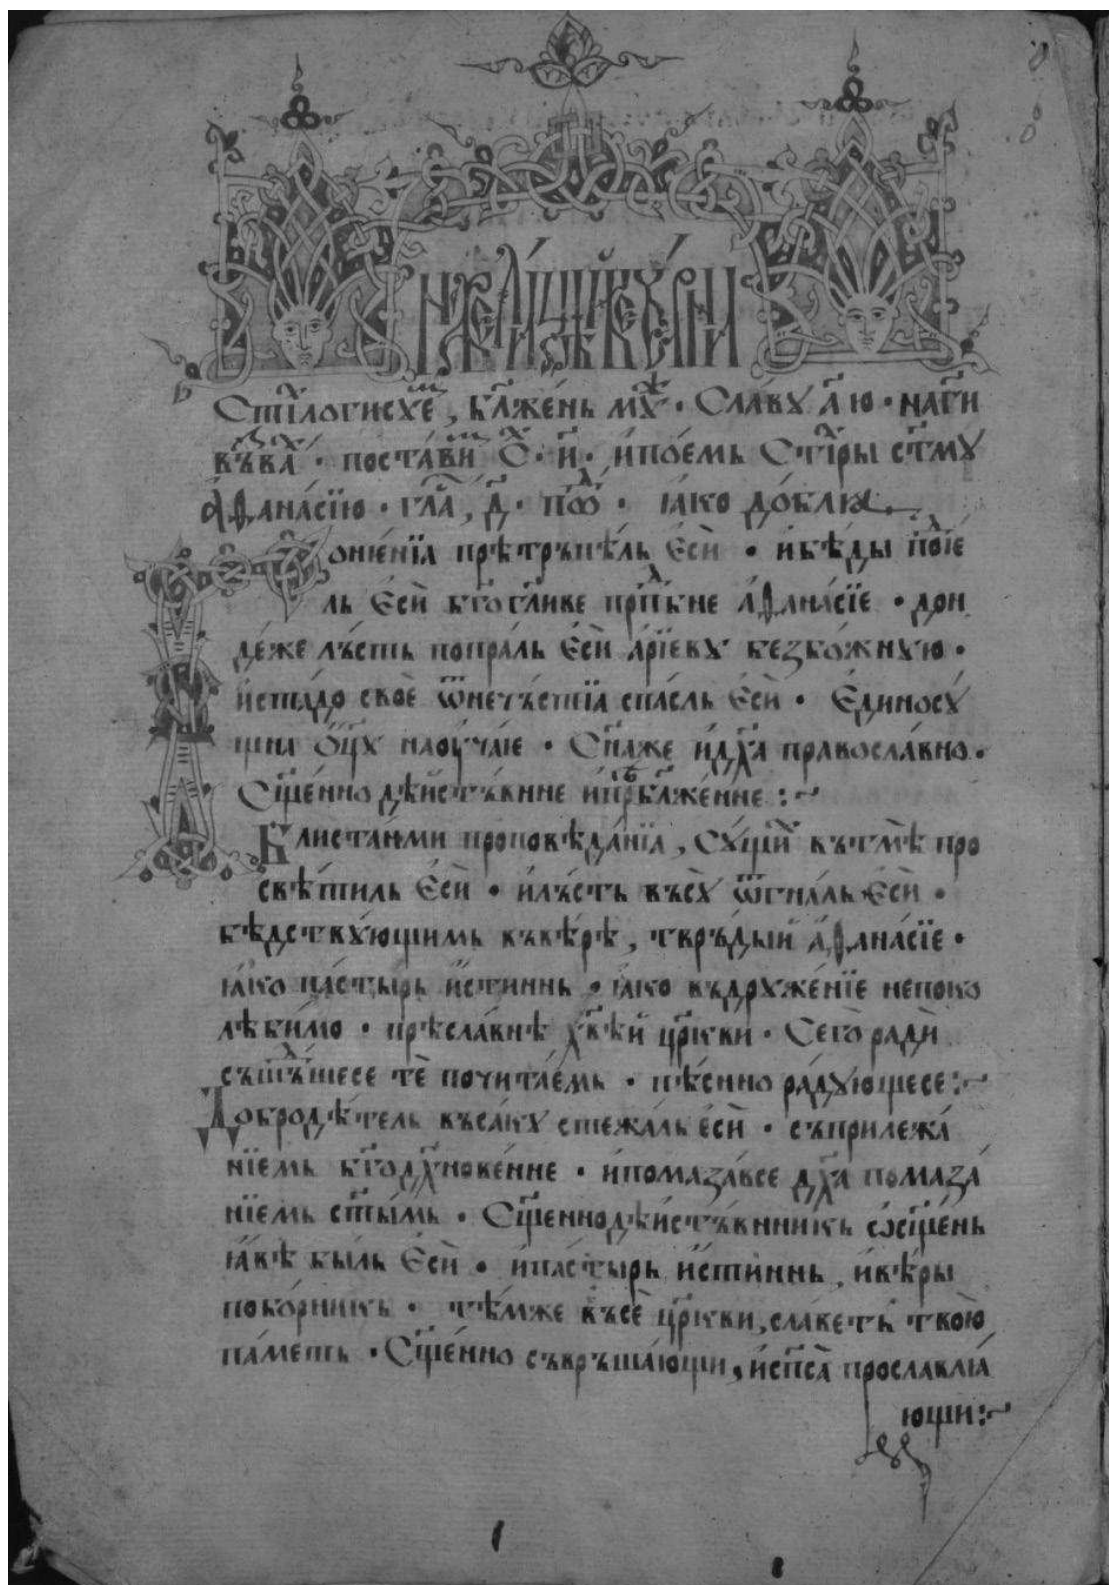 Стї́логисхѐ, бл҃же́нь мꙋ́ж · Сла́вꙋ а҃ ю · наг҃и
поста́ви · и҃ · и́пое́мь Стїры ст҃мꙋ
а́ѳана́сїю · гла҃, д҃ · пѡⷣ · ꙗко до́блꙗ
Гоне́нїа прѣтрьпѣ́ль ѐсѝ · и́бѣ́ды по́ⷣѥ
ль ѐсѝ бг҃огл҃ике прⷣпⷪбне а́ѳана́сїе · дон
де́же лъ́сть попра́ль ѐсѝ а́рїевꙋ безбо́жнꙋю ·
и́ста́до своѐ ѿнечъ́стїа спа́сль ѐсѝ · ѐдиносꙋ́
щна ѻ҆ц҃ꙋ наоу́ча́ѥ · Сн҃аже и́дх҃а правосла́вно ·
Сщ҃е́ннодѣ́йстъ́вние и́прⷣѣбл҃же́нне :~
Блиста́нми проповѣда́нїа, сꙋ́щїй въ́тмѣ̀ про
свѣти́ль ѐсѝ · и́лъ́сть въсꙋ̀ ѿгна́ль ѐсѝ ·
бѣ́дствꙋ́ющимь въвѣ́рѣ, твръ́дый а́ѳана́сїе ·
ꙗ́ко па́стырь и́стиннь · ꙗ́ко въдрꙋже́нїе непоко
лѣби́мо · прѣсла́внѣ хв҃ѣй цр҃кви · Сего̀ ра́дѝ
съшъⷣшесе тѐ почита́ѥмь · пѣ́снно ра́дꙋющесе :~
Добродѣ́тель въса́кꙋ стежа́ль ѐсѝ · съприлежа́
нїемь бг҃одх҃нове́нне · и́помаза́все дх҃а помаза́
нїемь ст҃ы́мь · Сщ҃еннодѣ́йстъ́внникь ѡ́сщ҃е́нь
ꙗ́вѣ бы́ль ѐсѝ · и́па́стырь и́стиннь, и́вѣ́ры
побо́рникь · тѣ́мже въсѐ цр҃кви, сла́веть твою̀
па́меть · Сщ҃е́нно съвръша́ющи, и́сп҃са̀ прославлꙗ́
ющи :~